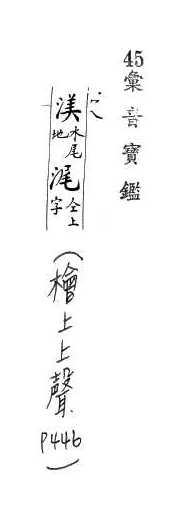 45彙音寶鑑
渼 水尾地
浘 仝上字
(檜上上聲. P446)